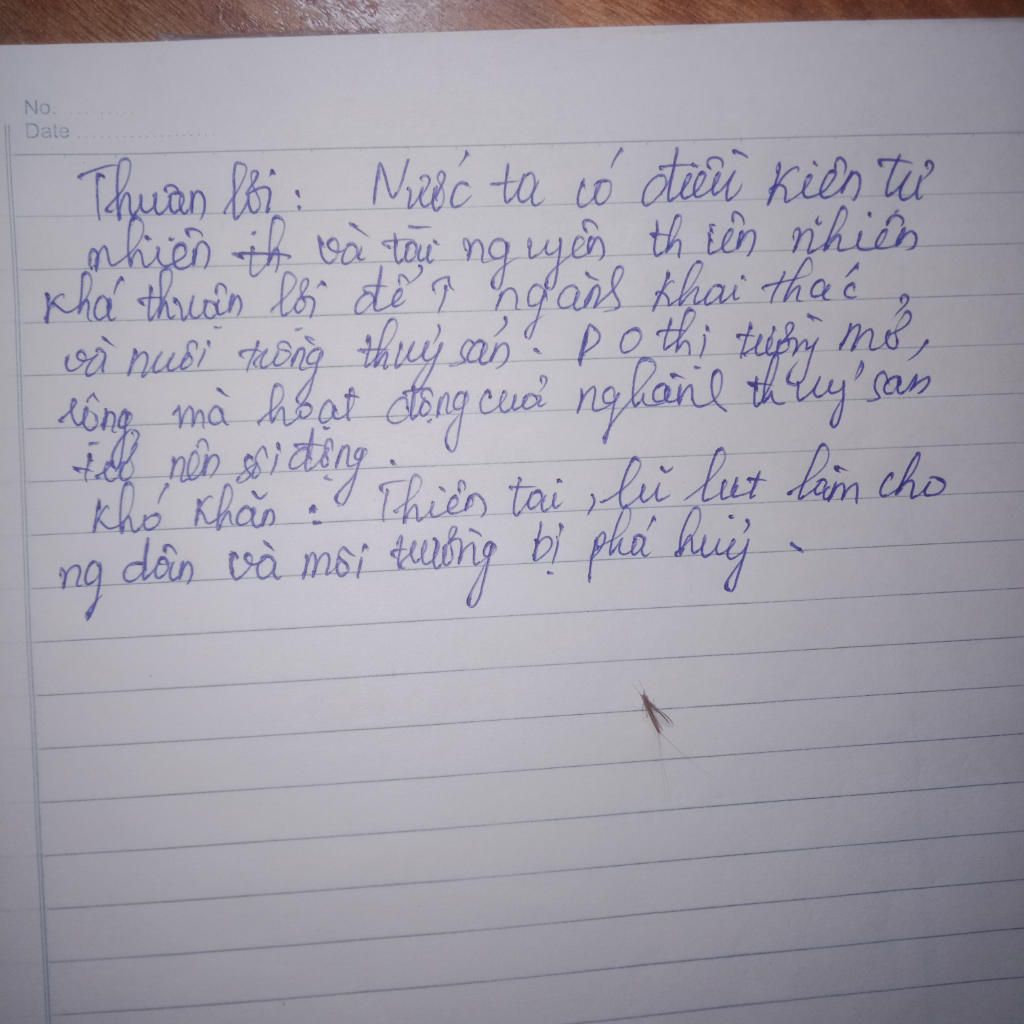 No. ..........
Date ....................
Thuân lơi : Nước ta có điều kiên tư
nhiên th và tài nguyên thiên nhiên
khá thuận lơi để ↑ ngành khai thác
và nuôi trồng thuỷ sản. Do thị trường mở,
rộng mà hoạt động của nghành thuỷ san
trở nên sôi động.
khó khăn : Thiên tai, lũ lut làm cho
ng dân và môi trường bị phá huỷ.